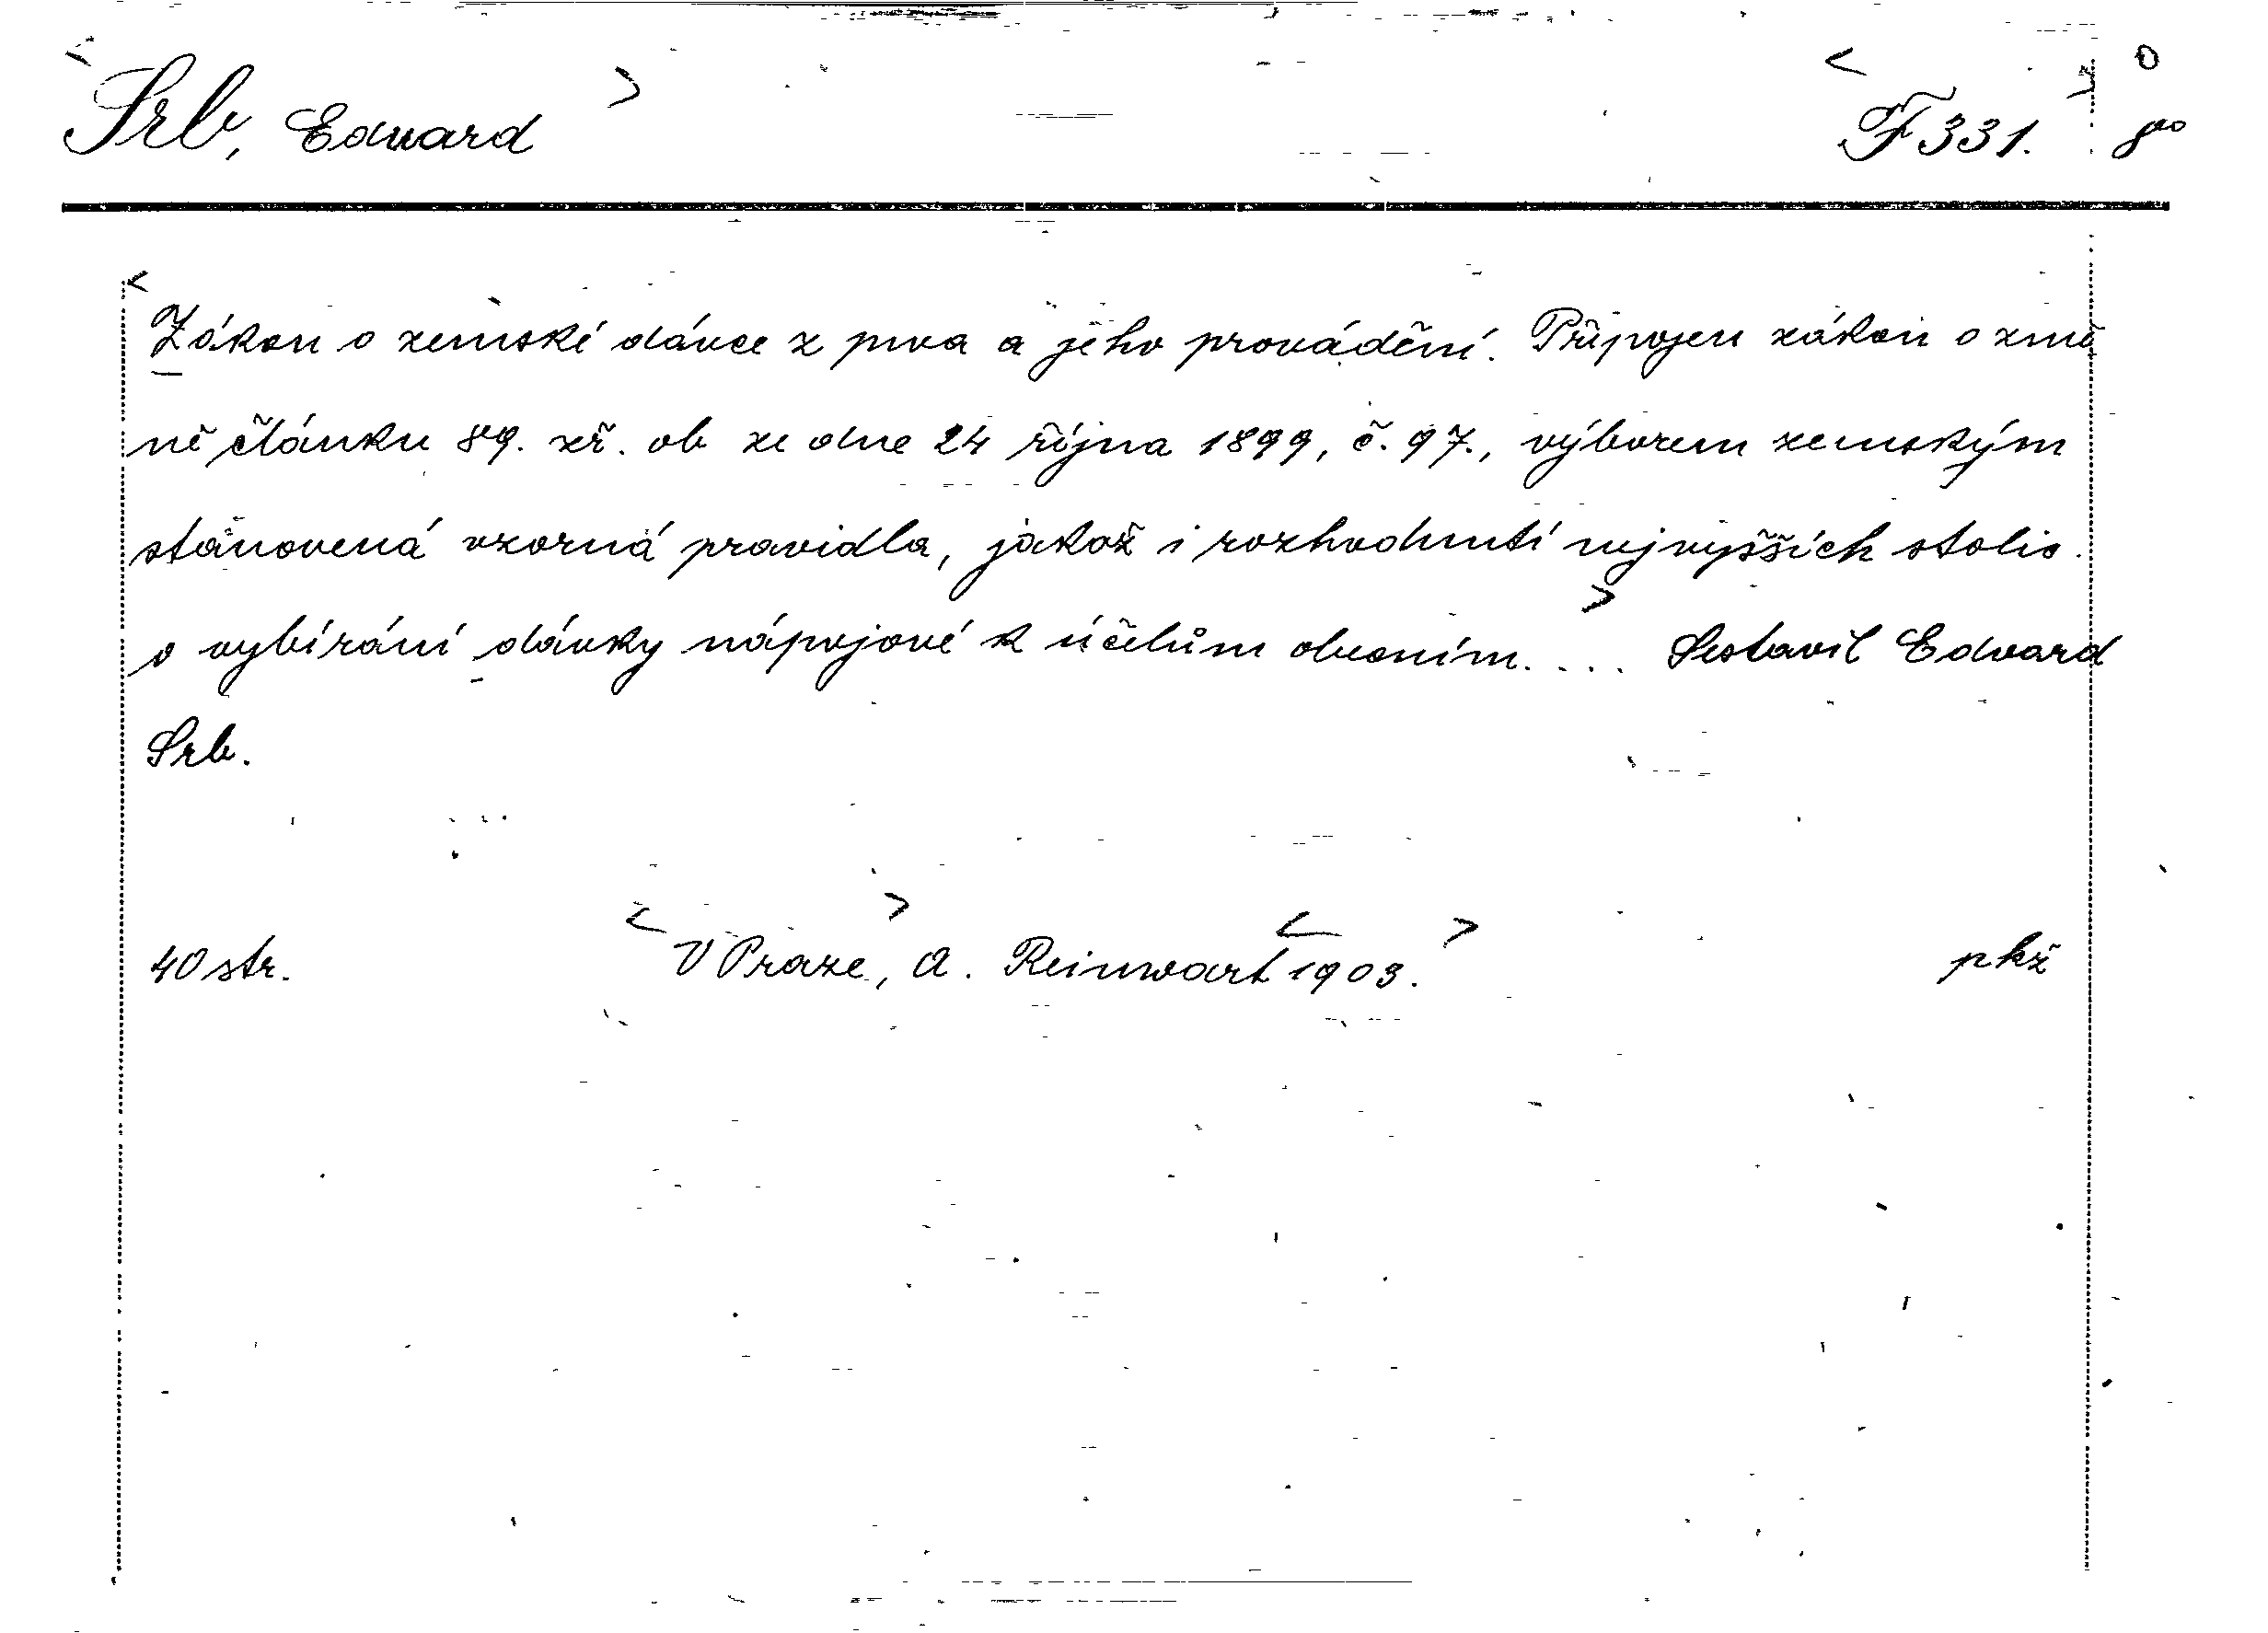 Srb, Edvard F 331. 8vo
Zákon o zemské dávce z piva a jeho provádění. Připojen zákon o změ
ně článku 89. zř. ob ze dne 24 října 1899, č. 97., výborem zemským
stanovená vzorná pravidla, jakož i rozhodnutí nejvyšších stolic.
o vybírání dávky nápojové k účelům obecním. ... Sestavil Edvard
Srb.
40 str. V Praze, A. Reinwart 1903. pkž